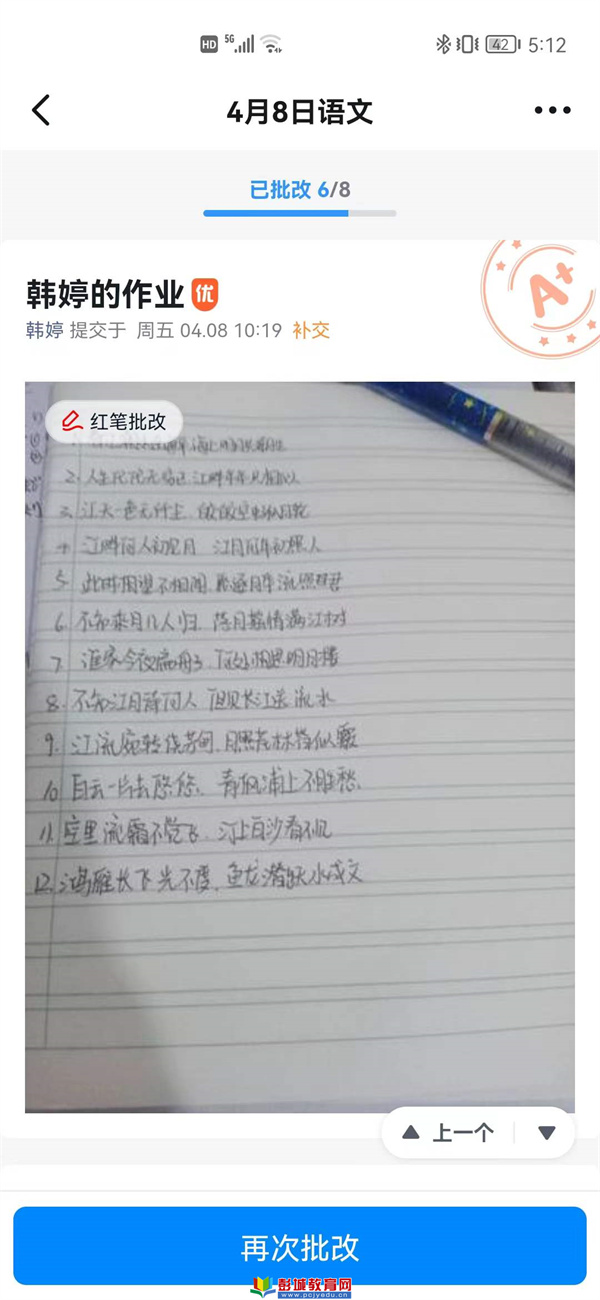 HD 5G 42 5:12
4月8日语文
已批改 6/8
韩婷的作业 优
A+
韩婷 提交于 周五 04.08 10:19 补交
红笔批改
2. 人生代代无穷已 江畔年年只相似
3. 江天一色无纤尘
4. 江畔何人初见月 江月何年初照人
5. 此时相望不相闻 愿逐月华流照君
6. 不知乘月几人归 落月摇情满江树
7. 谁家今夜扁舟子 何处相思明月楼
8. 不知江月待何人 但见长江送流水
9. 江流宛转绕芳甸 月照花林皆似霰
10 白云一片去悠悠 青枫浦上不胜愁
11. 空里流霜不觉飞 汀上白沙看不见
12. 鸿雁长飞光不度 鱼龙潜跃水成文
上一个
再次批改
彭城教育网
www.pcjyedu.cn